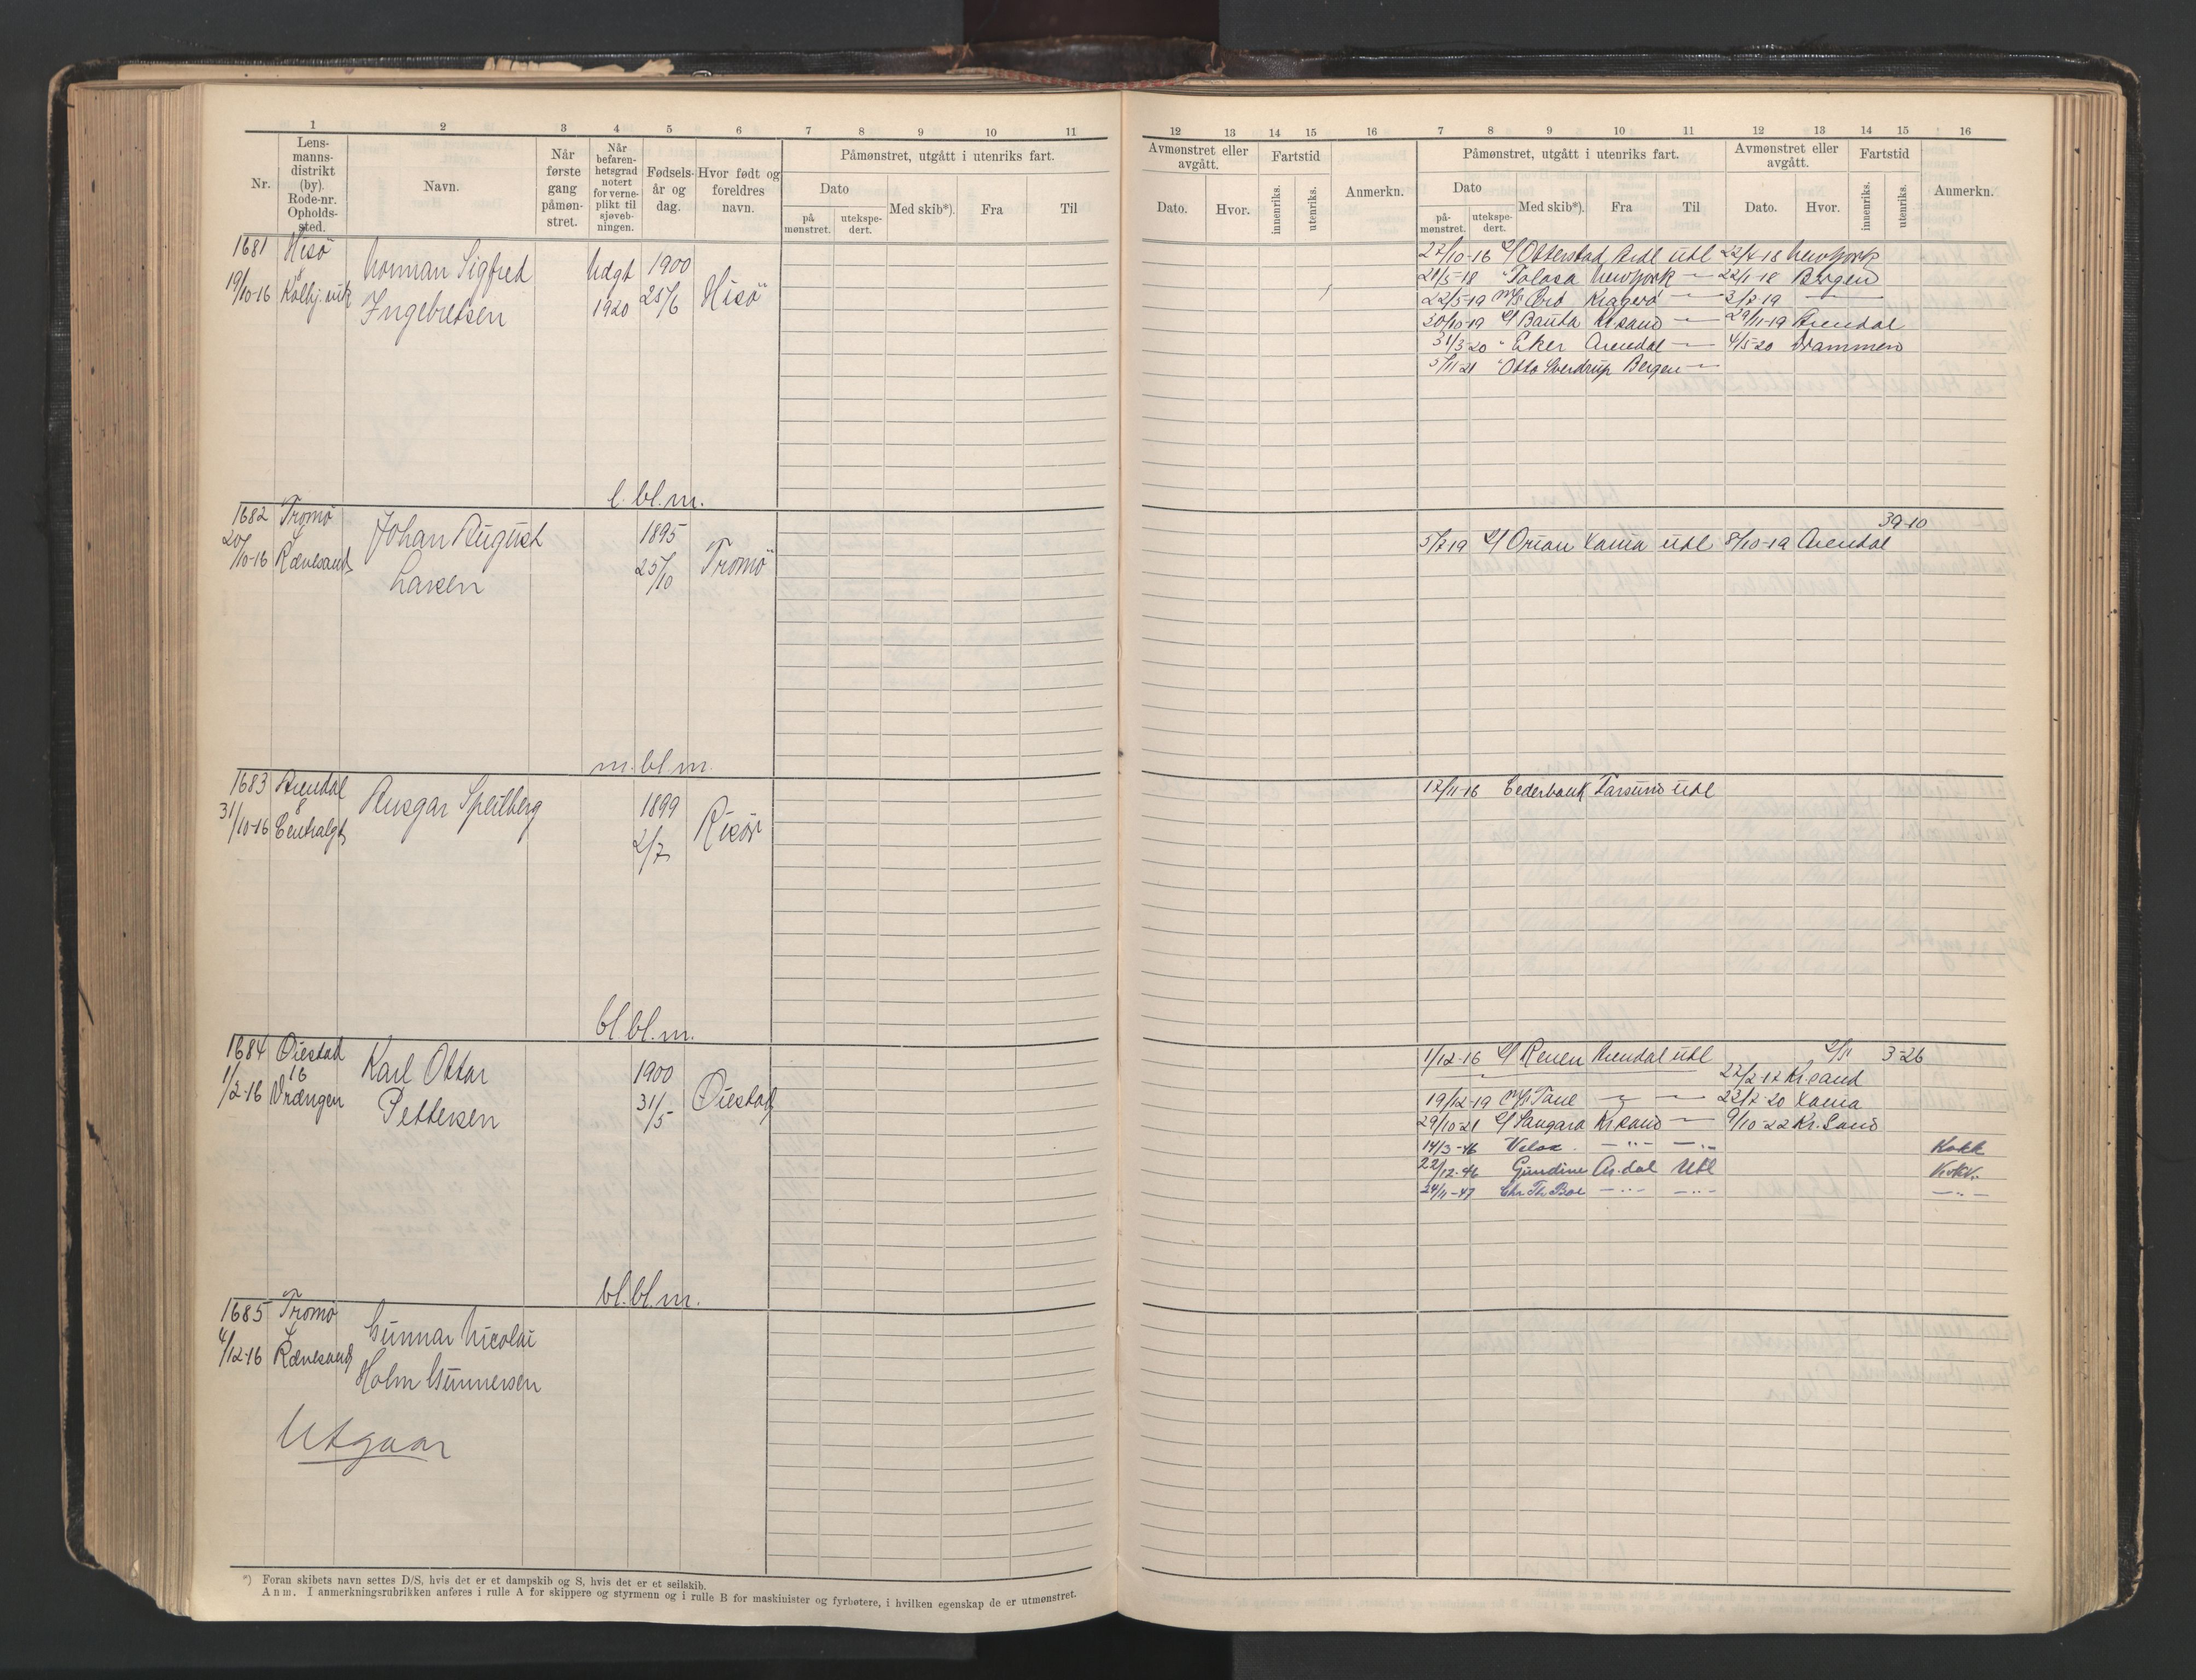 1 2 3 4 5 6 7 8 9 10 11
Nr.
Lens-
manns-
distrikt
(by).
Rode-nr.
Opholds-
sted.
Navn.
Når
første
gang
påmøn-
stret.
Når
befaren-
hetsgrad
notert
for verne-
plikt til
sjøveb-
ningen.
Fødsels-
år og
dag.
Hvor født og
foreldres
navn.
Påmønstret, utgått i utenriks fart.
Dato
på
mønstret.
utekspe-
dert.
Med skib*).
Fra
Til
1681 Hisö
8
19/10-16
Norman Sigfred
Ingebretsen
Udgt
1920
1900
25/6
Hisö
l. bl. m.
1682 Tromö
20/10-16 Rævesand
Johan August
Larsen
1895
25/10
Tromö
m. bl. m.
1683 Arendal
8
31/10-16 Centralgt
Ansgar Speilberg
1899
2/7
Risör
bl. bl. m.
1684 Öiestad
16
1/2-16 Vrængen
Karl Ottar
Pettersen
1900
31/5
Öiestad
bl. bl. m.
1685 Tromö
4/12-16 Rævesand
Gunnar Nicolai
Holm Gunnersen
Utgaar
*) Foran skibets navn settes D/S, hvis det er et dampskib og S, hvis det er et seilskib.
Anm. I anmerkningsrubrikken anføres i rulle A for skippere og styrmenn og i rulle B for maskinister og fyrbøtere, i hvilken egenskap de er utmønstret.
12 13 14 15 16 7 8 9 10 11 12 13 14 15 16
Avmønstret eller
avgått.
Dato.
Hvor.
Fartstid
innenriks.
utenriks.
Anmerkn.
Påmønstret, utgått i utenriks fart.
Dato
på-
mønstret.
utekspe-
dert.
Med skib*).
Fra
Til
Avmønstret eller
avgått.
Dato.
Hvor.
Fartstid
innenriks.
utenriks.
Anmerkn.
Otterstad Ardl Utl New York
21/5-18 " Tolosa New York — 22/1-18 Bergen
22/5-19 M/S Kragerö — 2/7-19 —
30/10-19 Bauta Kr.sand — 29/11-19 Arendal
31/3-20 " Eker Arendal — 4/5-20 Drammen
5/11-21 " Otto Sverdrup Bergen —
39-10
5/7-19 Orion Xania Utl 8/10-19 Arendal
12/11-16 Cederbank Farsund Utl
1/12-16 Arendal Utl 3-26
22/2-17 Kr.sand
19/12-19 M/S Tane — — 23/7-20 Xania
29/10-21 Sangara Kr.sand — 9/10-22 Kr.sand
14/3-46 Velox. — " — — " — Kokk
22/12-46 Gundine Ar.dal Utl Kokk
24/11-47 Chr Th Boe — " — — " — — " —